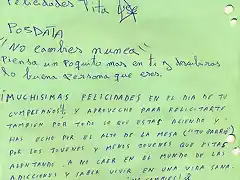 Felicidades Tita
POSDATA
"No cambies nunca"
Piensa un poquito mas en ti y descubriras
lo buena persona que eres.
¡MUCHISIMAS FELICIDADES EN EL DIA DE TU
CUMPLEAÑOS! Y APROVECHO PARA FELICITARTE
TAMBIEN POR TODO LO QUE ESTAS ACIENDO Y
HAS ECHO POR EL ALTO DE LA MESA
POR LOS JOVENES Y MENOS JOVENES QUE ESTAS
ALENTANDO A NO CAER EN EL MUNDO DE LAS
ADICCIONES Y SABER VIVIR EN UNA VIDA SANA